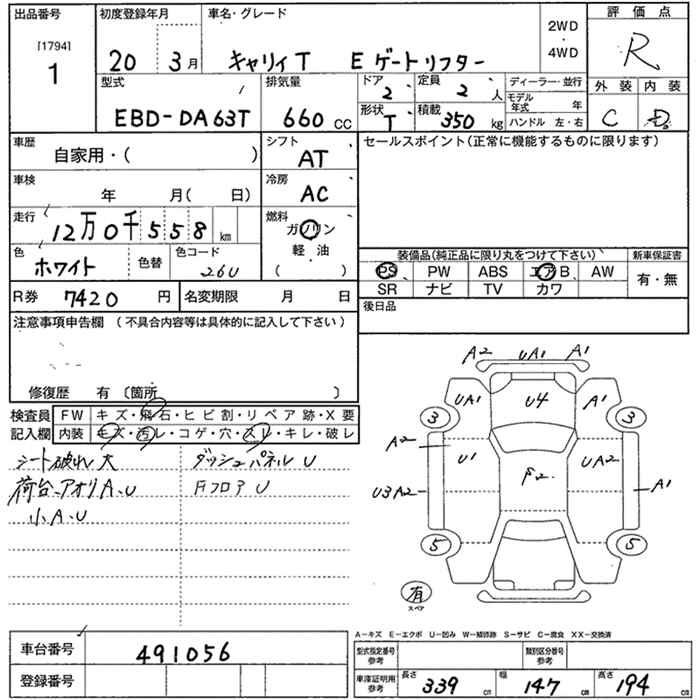 出品番号 初度登録年月 車名・グレード 2WD・4WD 評価点
[1794]
1 20 3月 キャリイT Eゲートリフター R
型式 排気量 ドア 2 定員 2 人 ディーラー・並行 外装 内装
モデル年式 年
EBD-DA63T 660 CC 形状 T 積載 350 kg ハンドル 左・右 C D
車歴 自家用・( ) シフト AT セールスポイント(正常に機能するものに限ります)
車検 年 月( 日) 冷房 AC
走行 12万0千558km 燃料 ガソリン 軽・油 ( )
色 ホワイト 色替 色コード 26U
装備品(純正品に限り丸をつけて下さい) 新車保証書
PS PW ABS エアB AW 有・無
SR ナビ TV カワ
R券 7420 円 名変期限 月 日 後日品
注意事項申告欄 (不具合内容等は具体的に記入して下さい)
修復歴 有 〔箇所 〕
検査員 FW キズ・飛石・ヒビ割・リペア跡・X要
記入欄 内装 キズ・汚レ・コゲ・穴・スリ・キレ・破レ
シート破れ大 ダッシュパネルU
荷台、アオリA、U FフロアU
小A、U
A2 UA1 A1
UA1 U4 A1
3 3
A2 U1 F2 UA2
U3A2 A1
5 5
有
スペア
A－キズ E－エクボ U－凹み W－補修跡 S－サビ C－腐食 XX－交換済
車台番号 491056 型式指定番号 参考 類別区分番号 参考
登録番号 車庫証明用 参考 長さ 339 cm 幅 147 cm 高さ 194 cm